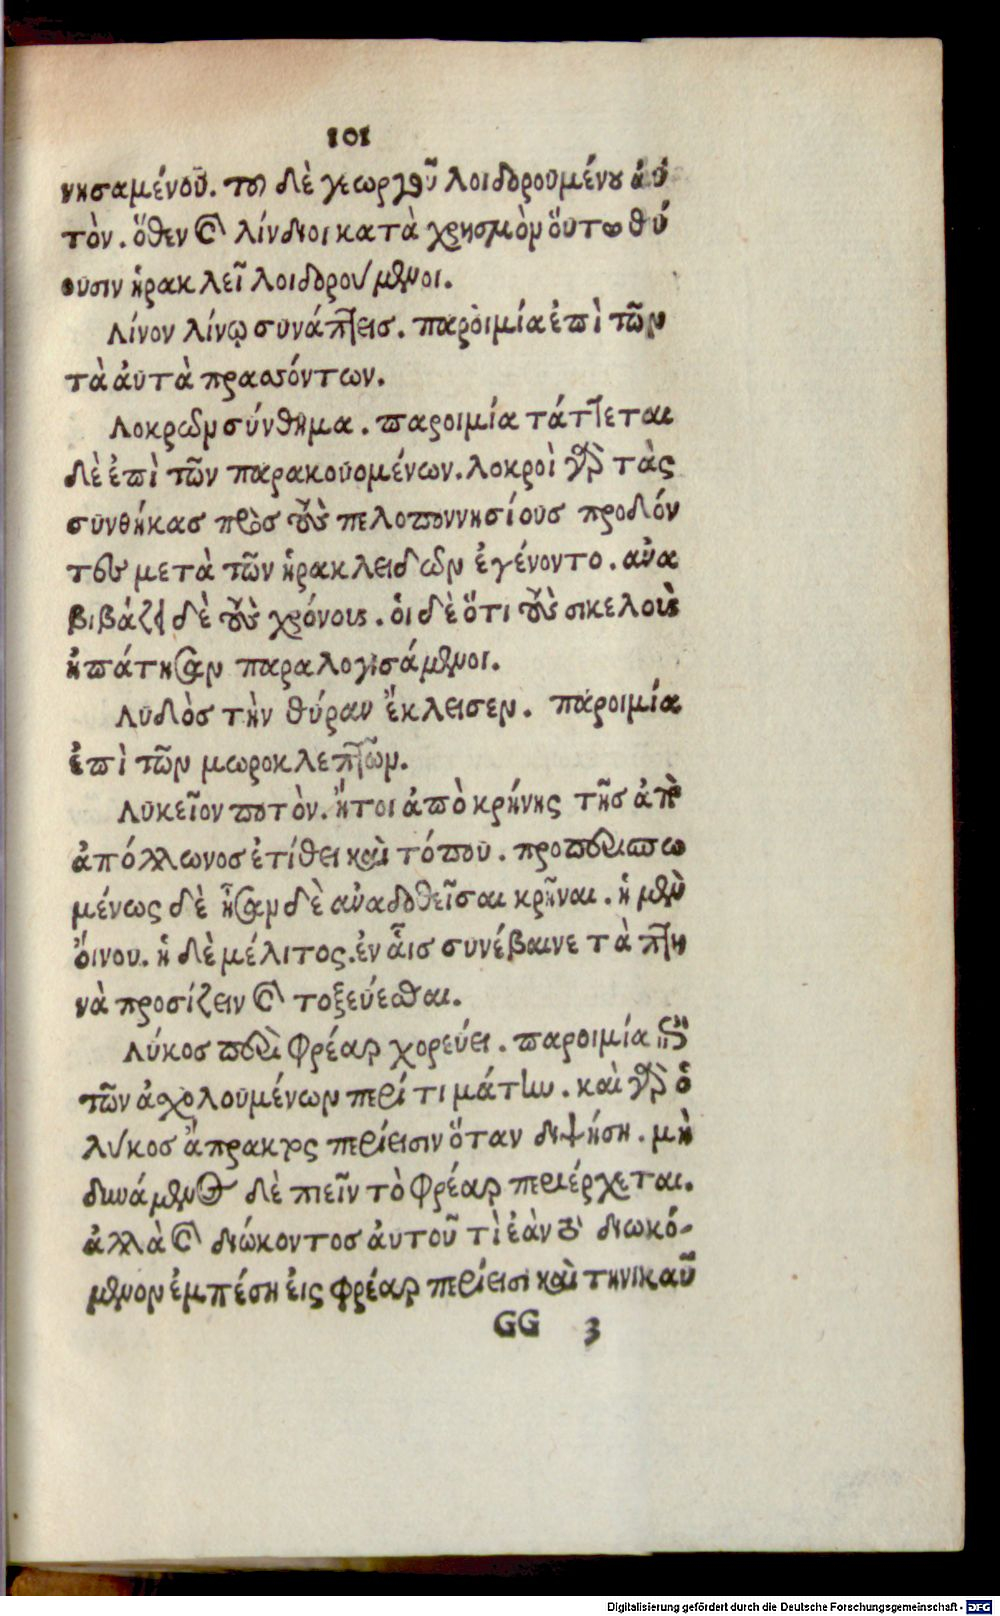 101
νησαμένου. τοῦ δὲ γεωργοῦ λοιδορουμένου ἀυ
τὸν. ὅθεν καὶ λίνδιοι κατὰ χρησμὸν ὅυτω θύ
ουσιν ἡρακλεῖ λοιδορούμενοι.
Λίνον λίνῳ συνάπτεις. παροιμία ἐπὶ τῶν
τὰ ἀυτὰ πρασσόντων.
Λοκρῶν σύνθημα. παροιμία τάττεται
δὲ ἐπὶ τῶν παρακουομένων. λοκροὶ γὰρ τὰς
συνθήκασ πρὸσ τοὺς πελοποννησίουσ προδόν
τες μετὰ τῶν ἡρακλειδῶν ἐγένοντο. ἀνα
βιβάζει δὲ τοὺς χρόνους. ὁι δὲ ὅτι τοὺς σικελοὺς
ἠπάτησαν παραλογισάμενοι.
Λυδὸσ τὴν θύραν ἔκλεισεν. παροιμία
ἐπὶ τῶν μωροκλεπτῶν.
Λυκεῖον ποτὸν. ἤτοι ἀπὸ κρήνης τῆσ ἀπὸ
ἀπόλλωνοσ ἐτίθει καὶ τόπου. προπεριπω
μένως δὲ ἦσαν δὲ ἀναδοθεῖσαι κρῆναι. ἡ μὲν
ὄινου. ἡ δὲ μέλιτος. ἐν ἇισ συνέβαινε τὰ πτη
νὰ προσίζειν καὶ τοξεύεσθαι.
Λύκοσ περὶ φρέαρ χορεύει. παροιμία ἐπὶ
τῶν ἀσχολουμένων περί τι μάτην. καὶ γὰρ ὁ
λύκοσ ἄπρακτος περίεισιν ὅταν διψήση. μὴ
δυνάμενος δὲ πιεῖν τὸ φρέαρ περιέρχεται.
ἀλλὰ καὶ διώκοντοσ ἀυτοῦ τὶ ἐὰν τὸ διωκό-
μενον ἐμπέση ἐις φρέαρ περίεισι καὶ τηνικαῦ
GG 3
Digitalisierung gefördert durch die Deutsche Forschungsgemeinschaft - DFG